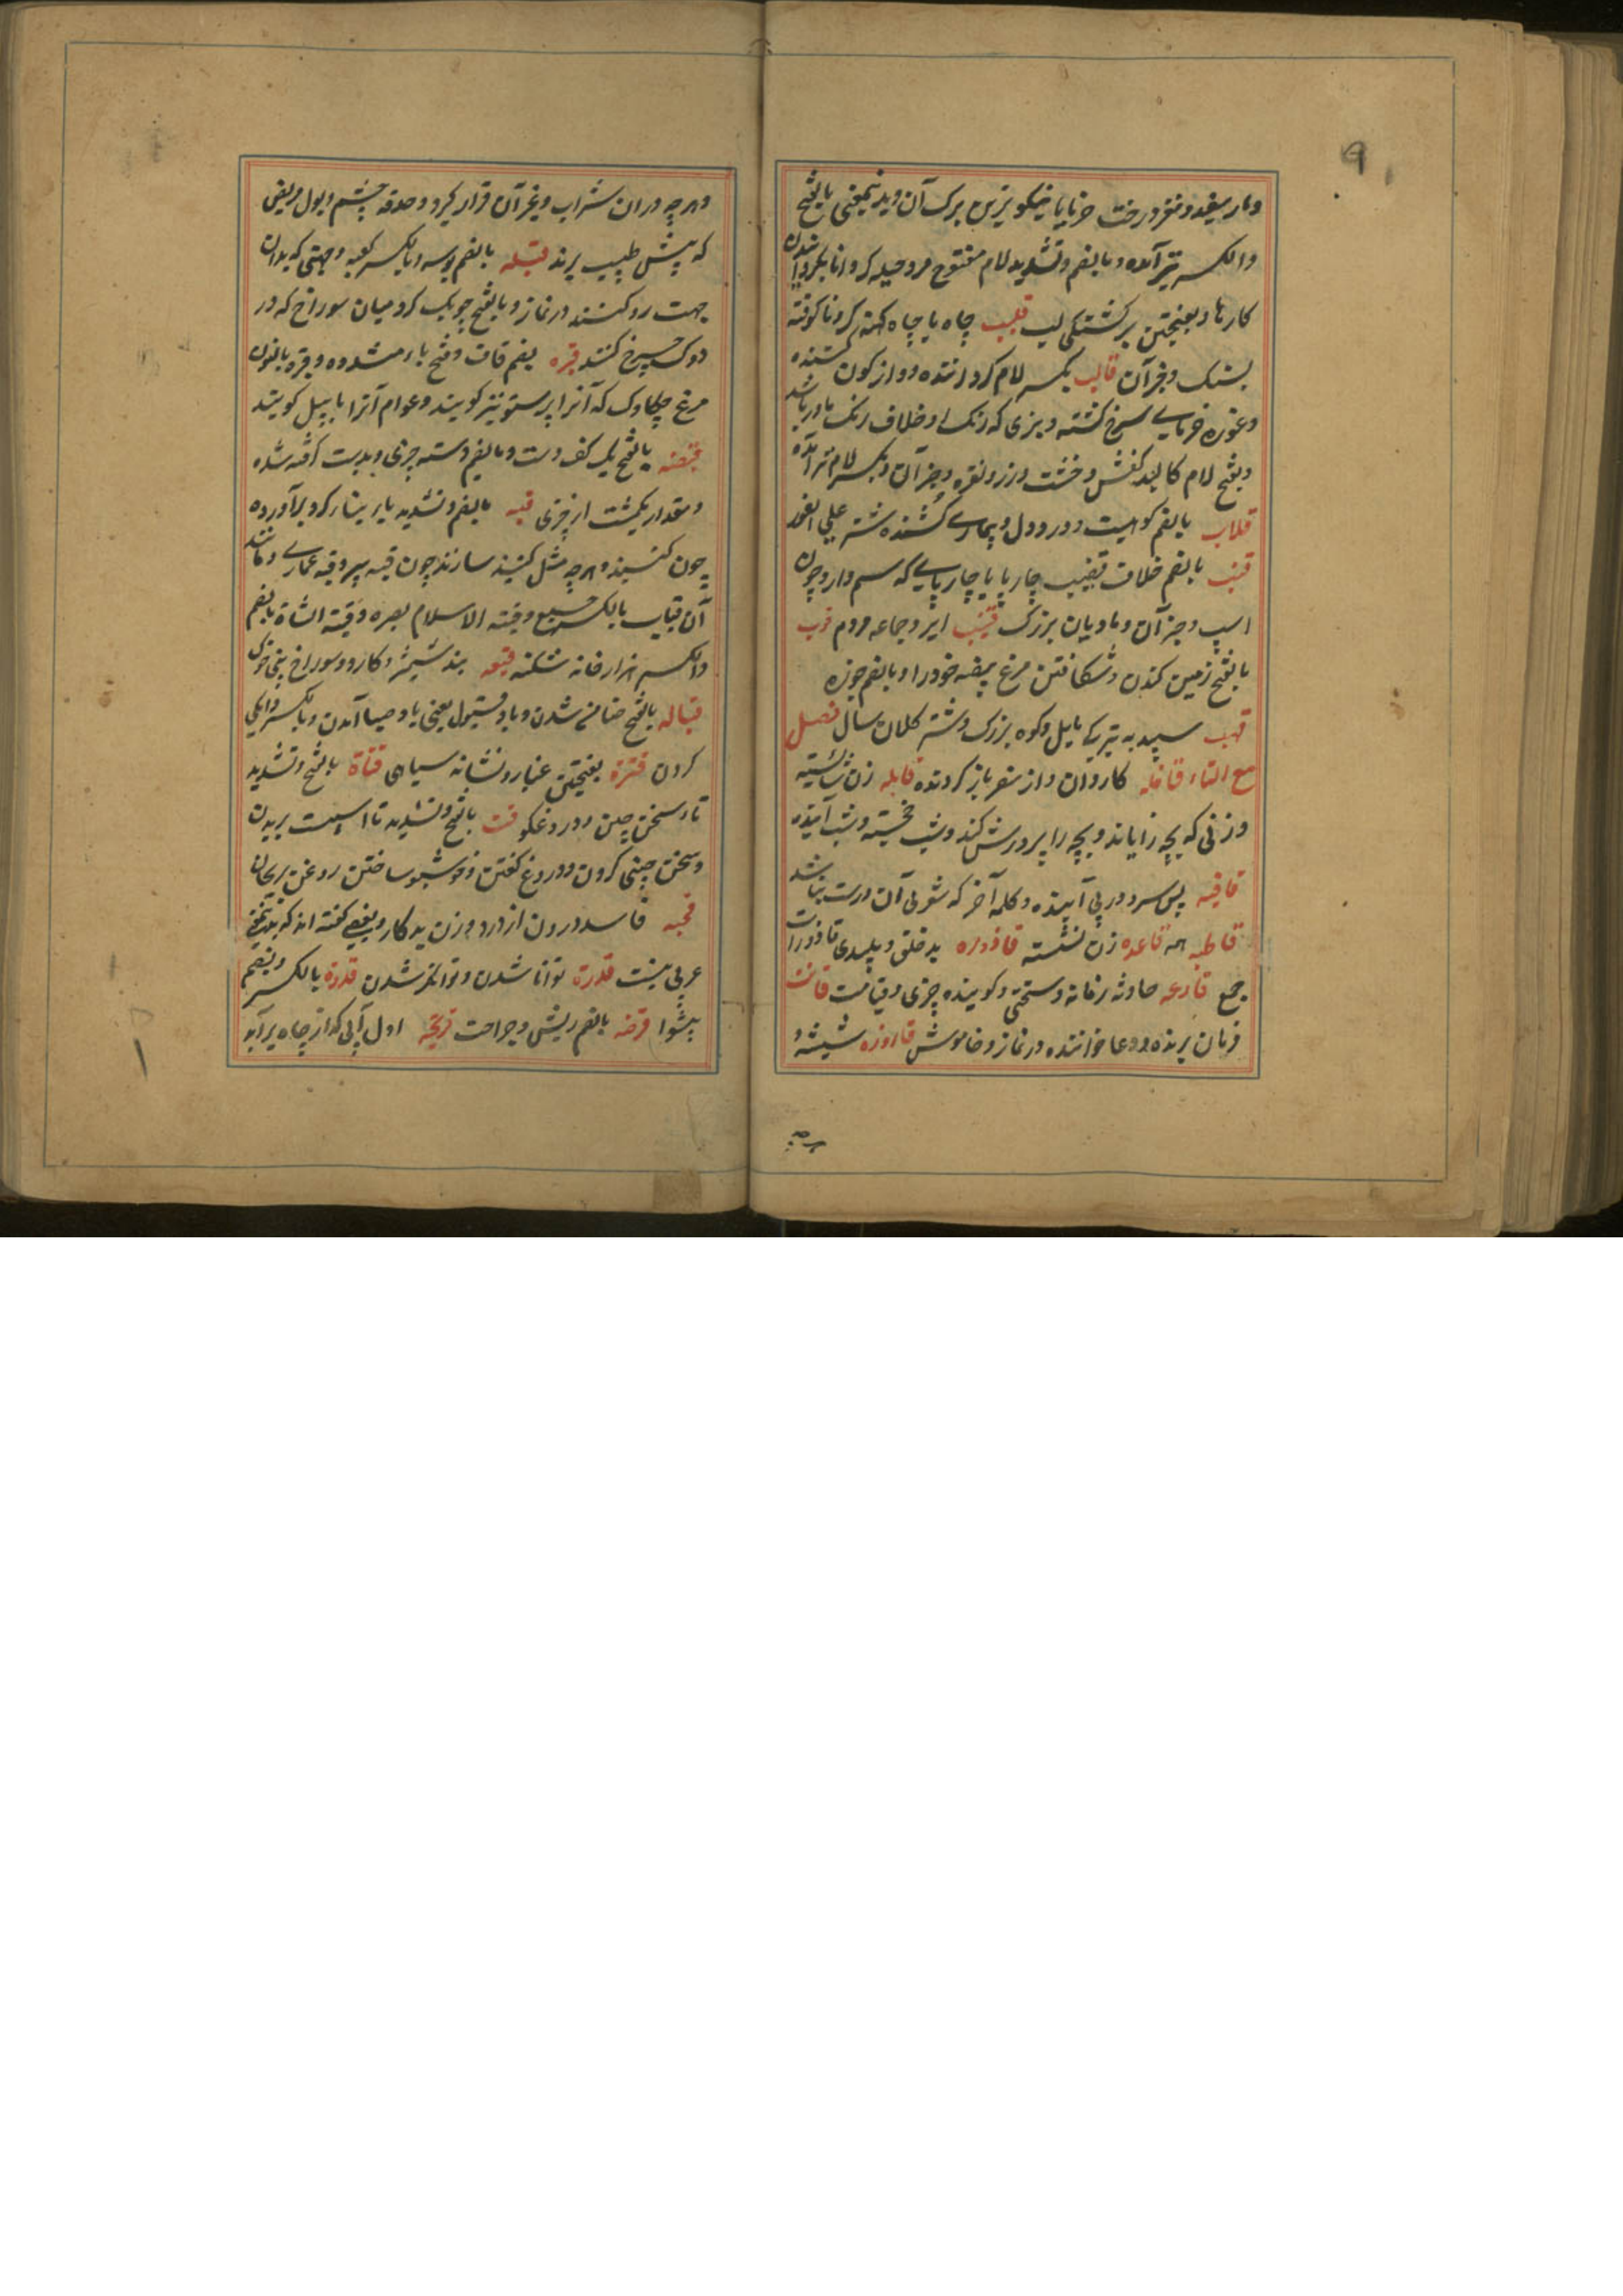 و مار سفید و مغز درخت خرما یا نیکوترین برک آن و بدینمعنی بالفتح
والکسر نیز آمده و بالضم و تشدید لام مفتوح مرد حیله کر دانا بکردانیدن
کارها و بفتحتین برکشتکی لب قلیب چاه یا چاه کهنه کرد ناکوفته
بسنک و جز آن قالب بکسر لام کرداننده و واژکون کننده
و غوره خرمای سرخ کشته و بزی که رنک او خلاف رنک مادر باشد
و بفتح لام کالبد کفش و خشت و زر و نقره و جز آن و بکسر لام نیز آمده
قلاب بالضم کوهیست و درد دل و بیماری کشنده شتر علی الفور
قنب بالضم غلاف قضیب چارپا یا چارپایی که سم دارد چون
اسپ و جز آن و بادبان بزرک قنیب ابر و جماعه مردم قوب
بالفتح زمین کندن و شکافتن مرغ بیضه خود را و بالضم چوزه
قهب سپید به تیرکی مایل و کوه بزرک و شتر کلان سال فصل
مع التاء قافله کاروان و از سفر باز کردنده قابله زن شایسته
و زنی که بچه زایاند و بچه را پرورش کند و شب نخسته و شب آینده
قافیه پس سر و در پی آینده و کلمه آخر که شعر بی آن درست نباشد
قاطبه همه قاعده زن نشسته قاذوره بد خلق و پلیدی قاذورات
جمع قارعه حادثه زمانه و سختی و کوبنده چیزی و قیامت قانت
فرمان برنده و دعا خواننده در نماز و خاموش قاروره شیشه
و هرچه دران شراب و غیر آن قرار کیرد و حدقه چشم و بول مریض
که پیش طبیب برند قبله بالضم بوسه و بالکسر کعبه و جهتی که بدان
جهت رو کنند در نماز و بالفتح چوبک کرد میان سوراخ که در
دوک چرخ کنند قبره بضم قاف و فتح باء مشدده و قنبره بالنون
مرغ چکاوک که آنرا پرستو نیز کویند و عوام آنرا بابیل کویند
قبضه بالفتح یک کف دست و بالضم دسته چیزی و بدست کرفته شده
و مقدار یکمشت از چیزی قبه بالضم و تشدید باء بنای کرد برآورده
چون کنبد و هرچه مثل کنبد سازند چون قبه سپر و قبه عماری و مانند
آن قباب بالکسر جمع و قبه الاسلام بصره و قبه الشاة بالضم
والکسر هزار خانه شکنبه قبیعه بند شمشیر و کارد و سوراخ بینی خوک
قباله بالفتح ضامن شدن و باد قبول یعنی باد صبا آمدن و بالکسر دایکی
کردن قترة بفتحتین غبار و نشانه سیاهی قتاة بالفتح و تشدید
تاء سخن چین و دروغکو قت بالفتح و تشدید تا اسپست بریدن
و سخن چینی کردن و دروغ کفتن و خوشبو ساختن روغن بریحان
قحبه فاسد درون از درد و زن بد کار و بعضی کفته اند که بدینمعنی
عربی نیست قدرة توانا شدن و توانکر شدن قدوة بالکسر و بضم
پیشوا قرحه بالضم ریش و جراحت قریحه اول آبی که از چاه برآید